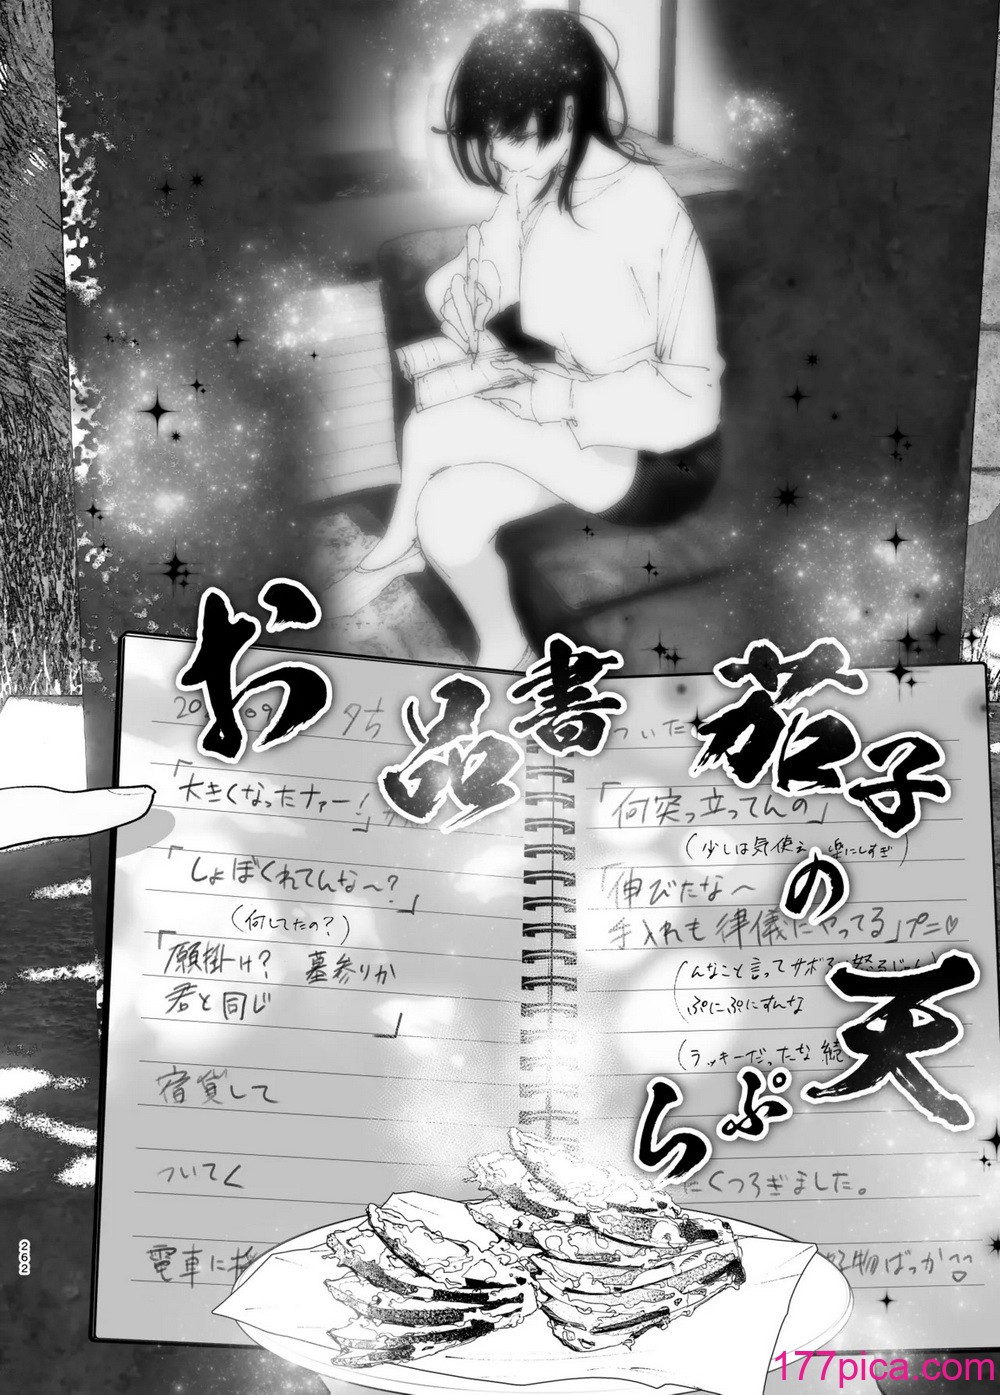 茄子の天ぷら
お品書
20
09
夕方
「大きくなったナァー！」
「しょぼくれてんな〜？」
（何してたの？）
「願掛け？　墓参りか
君と同じ　」
宿貸して
ついてく
電車に
ついた
「何突っ立ってんの」
（少しは気使え　楽にしすぎ）
「伸びたな〜
手入れも律儀にやってる」プニ♡
（んなこと言ってサボる
ぷにぷにすんな
（ラッキーだったな
くつろぎました。
物ばっか
262
177pica.com